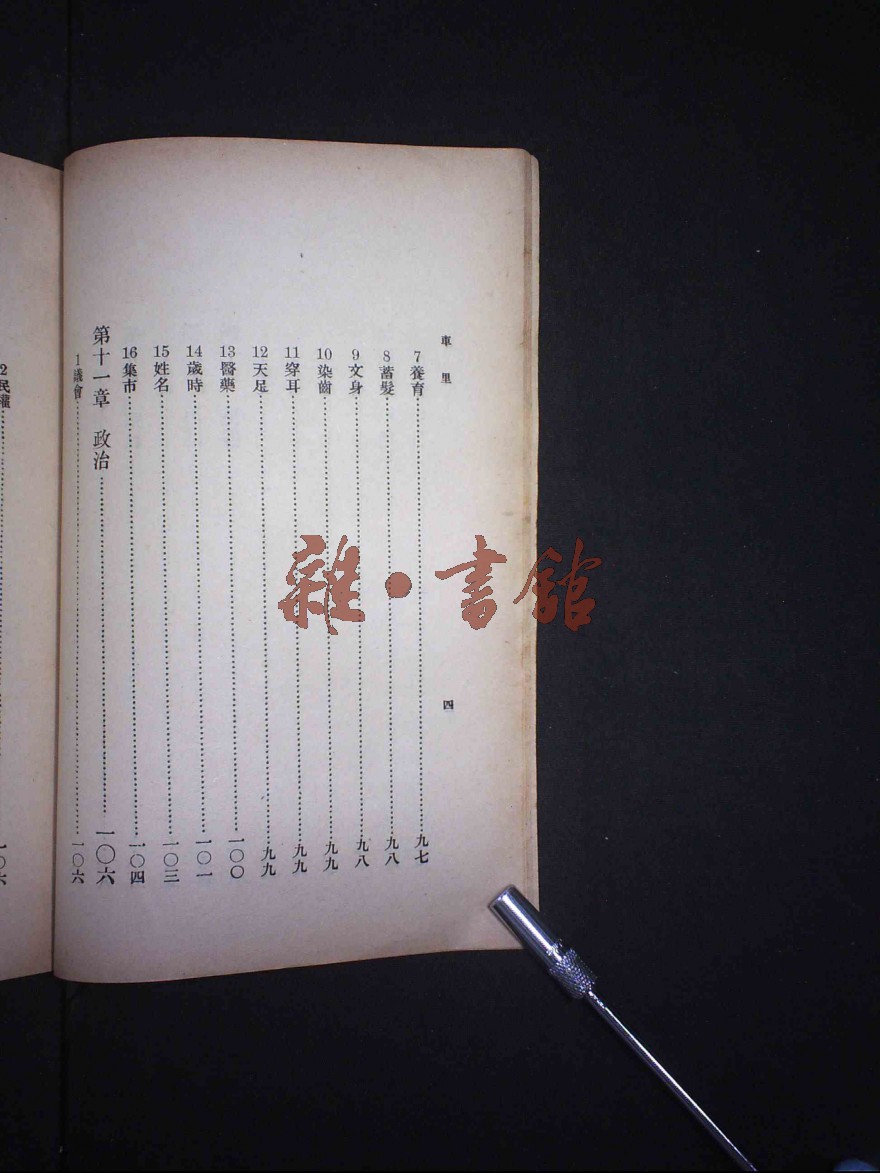 車里
四
7 養育……九七
8 蓄髮……九八
9 文身……九八
10 染齒……九九
11 穿耳……九九
12 天足……九九
13 醫藥……一〇〇
14 歲時……一〇一
15 姓名……一〇三
16 集市……一〇四
第十一章 政治……一〇六
1 議會……一〇六
2 民權……一〇六
雜·書館